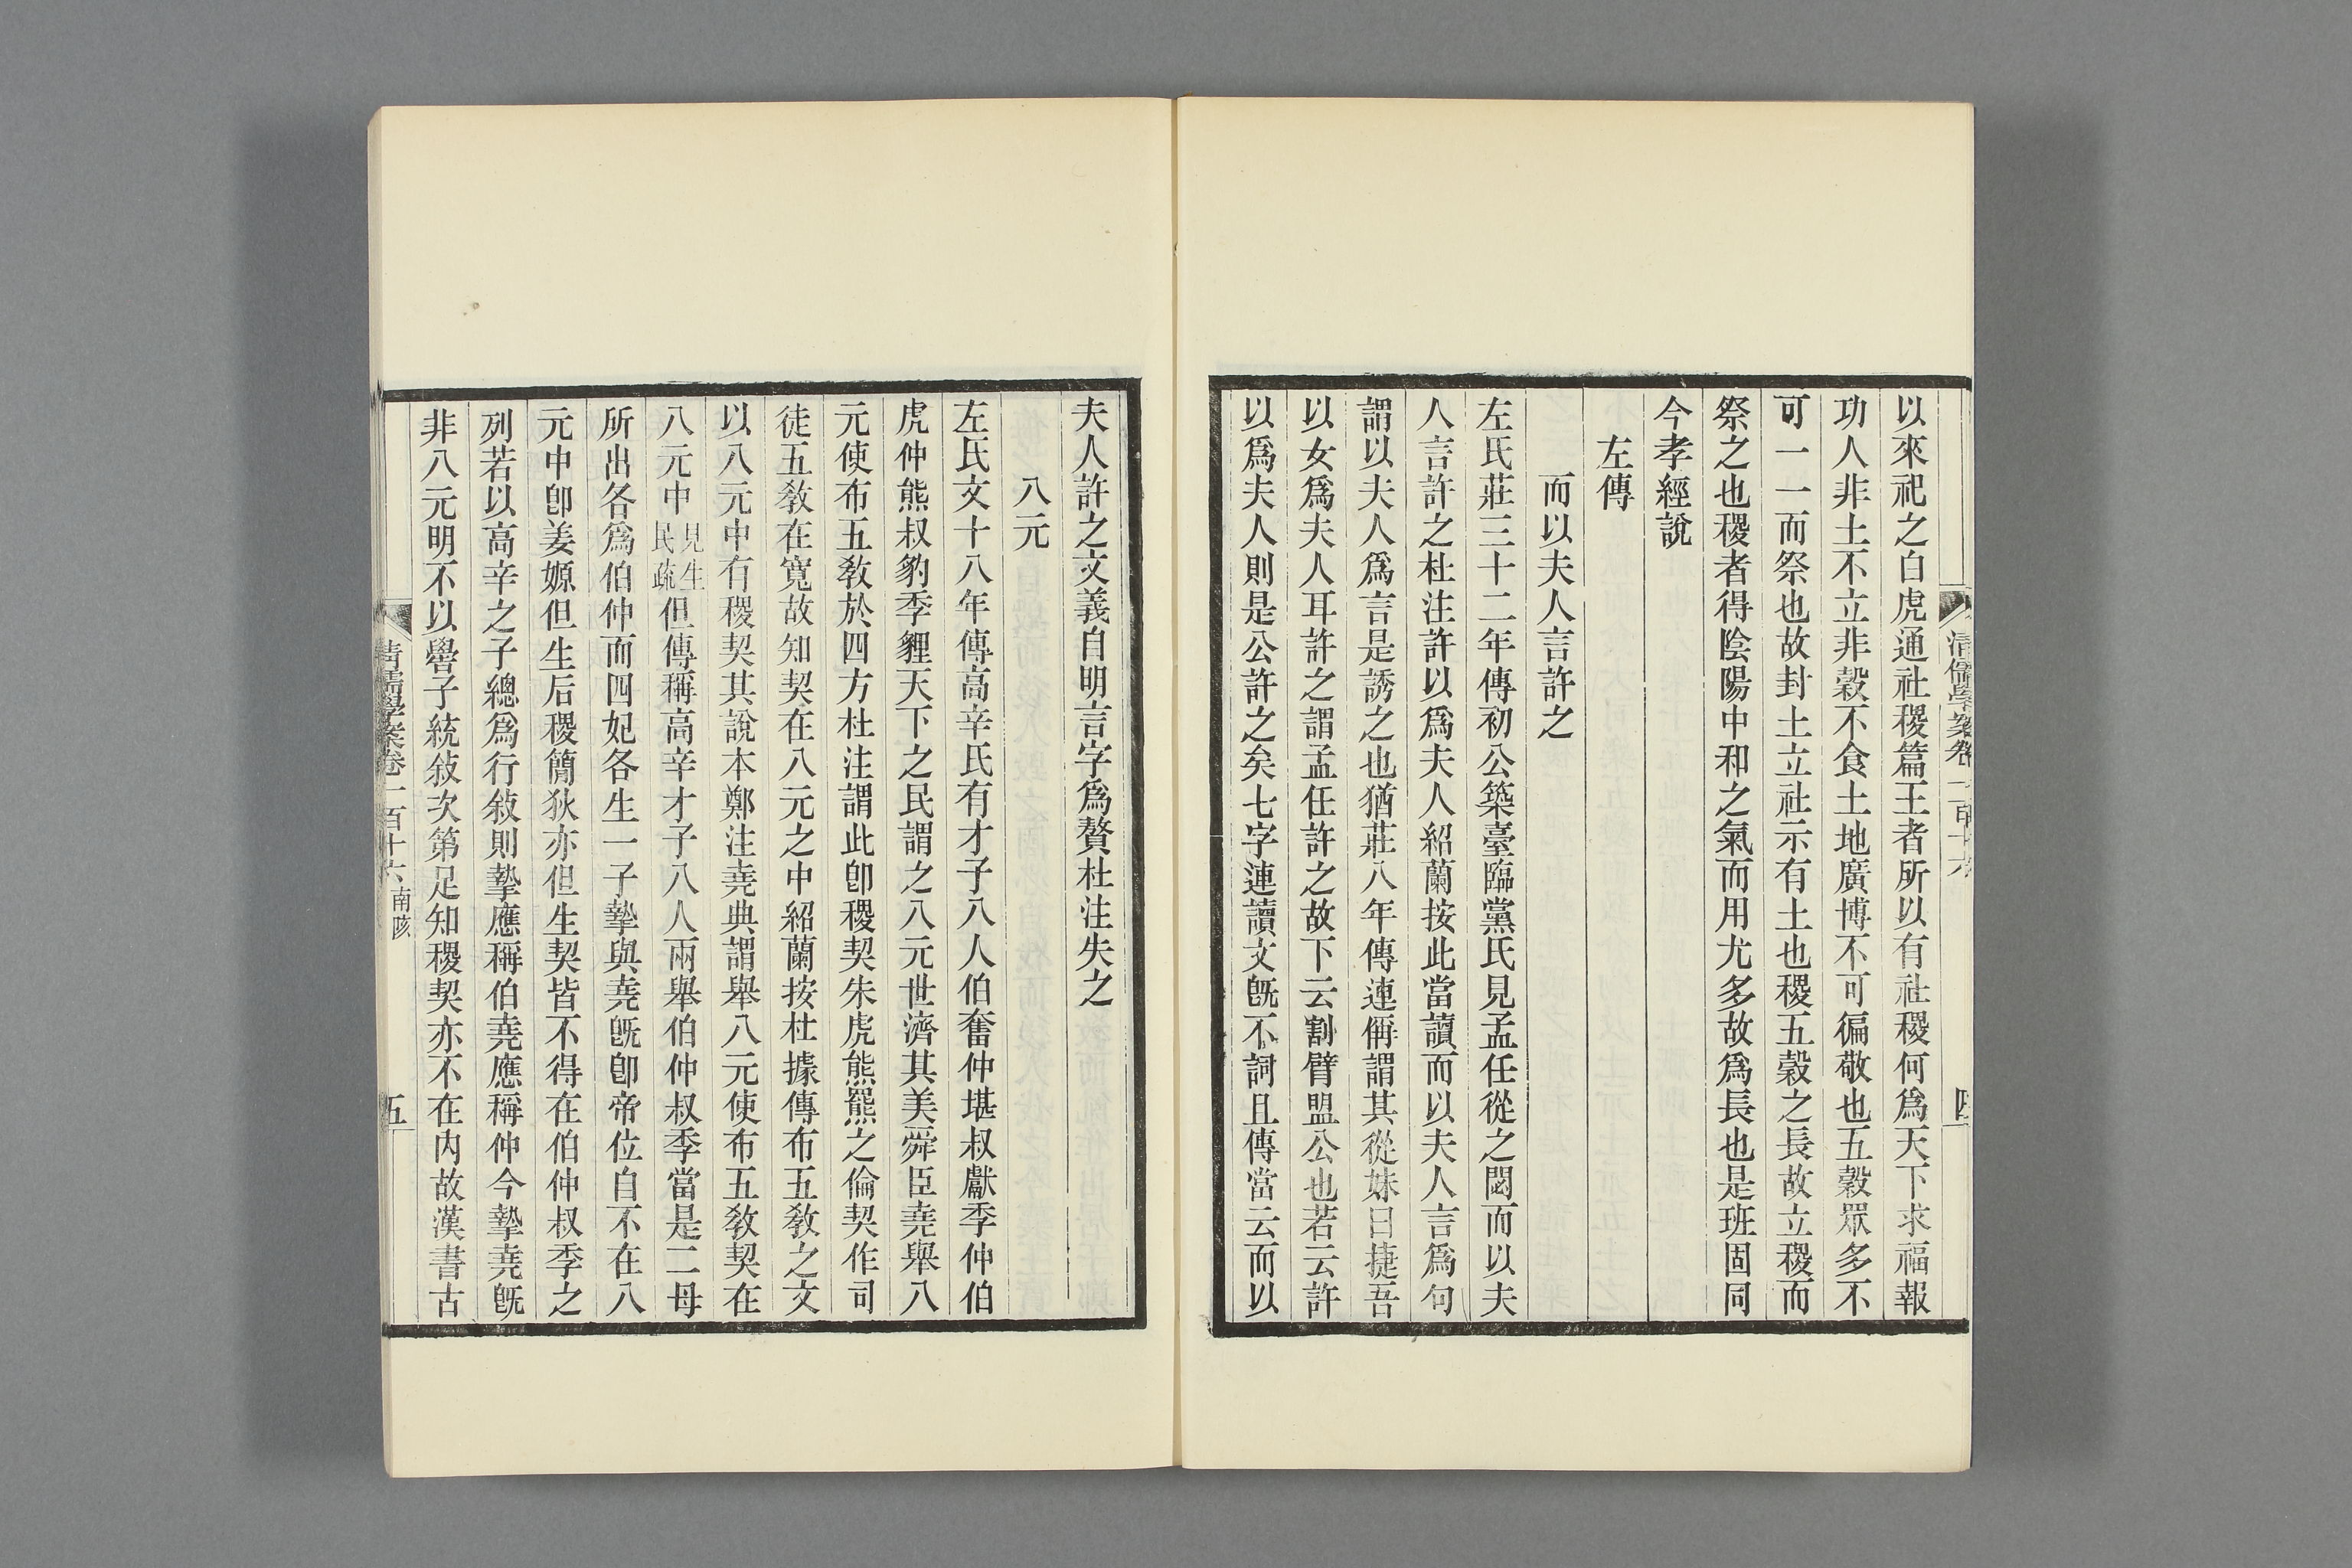 清儒學案卷一百十六
四
以來祀之白虎通社稷篇王者所以有社稷何爲天下求福報
功人非土不立非穀不食土地廣博不可徧敬也五穀眾多不
可一一而祭也故封土立社示有土也稷五穀之長故立稷而
祭之也稷者得陰陽中和之氣而用尤多故爲長也是班固同
今孝經說
左傳
而以夫人言許之
左氏莊三十二年傳初公築臺臨黨氏見孟任從之閟而以夫
人言許之杜注許以爲夫人紹蘭按此當讀而以夫人言爲句
謂以夫人爲言是誘之也猶莊八年傳連稱謂其從妹曰捷吾
以女爲夫人耳許之謂孟任許之故下云割臂盟公也若云許
以爲夫人則是公許之矣七字連讀文旣不詞且傳當云而以
夫人許之文義自明言字爲贅杜注失之
八元
左氏文十八年傳高辛氏有才子八人伯奮仲堪叔獻季仲伯
虎仲熊叔豹季貍天下之民謂之八元世濟其美舜臣堯舉八
元使布五敎於四方杜注謂此卽稷契朱虎熊羆之倫契作司
徒五敎在寬故知契在八元之中紹蘭按杜據傳布五敎之文
以八元中有稷契其說本鄭注堯典謂舉八元使布五敎契在
八元中見生民疏但傳稱高辛才子八人兩舉伯仲叔季當是二母
所出各爲伯仲而四妃各生一子摯與堯旣卽帝位自不在八
元中卽姜嫄但生后稷簡狄亦但生契皆不得在伯仲叔季之
列若以高辛之子總爲行敍則摯應稱伯堯應稱仲今摯堯旣
非八元明不以嚳子統敍次第足知稷契亦不在內故漢書古
清儒學案卷一百十六 南陔
五